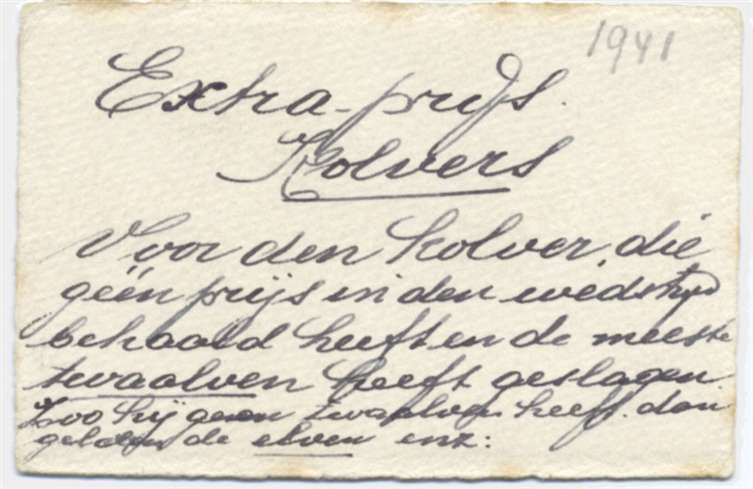 1941
Extra-prijs.
Kolvers
Voor den kolver, die
géén prijs in den wedstrijd
behaald heeft en de meeste
twaalven heeft geslagen.
Zoo hij geen twaalven heeft dan
gelden de elven enz: